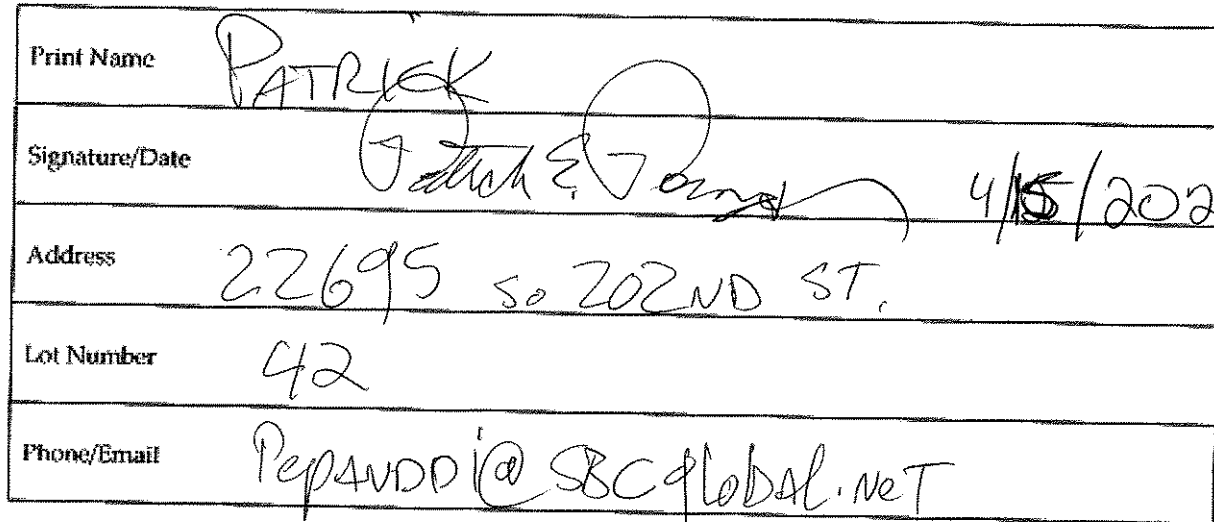 Print Name PATRICK
Signature/Date Patrick E 4/15/202
Address 22695 So 202ND ST.
Lot Number 42
Phone/Email PepANDDi@SBCglobal.NeT